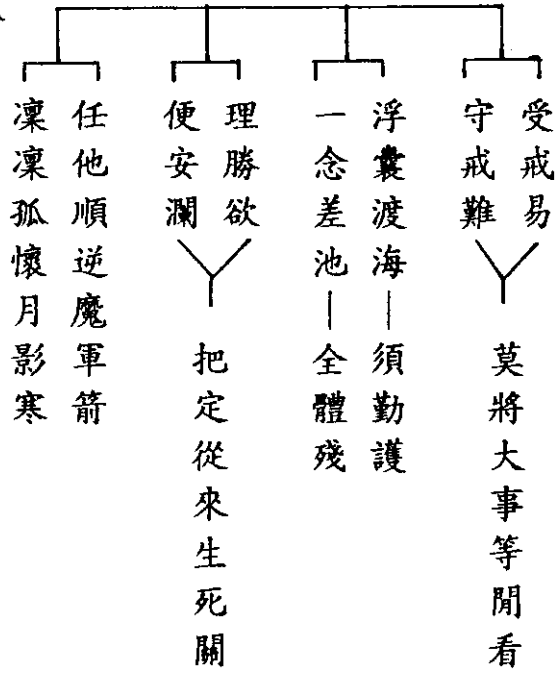 受戒易
守戒難
莫將大事等閒看
浮囊渡海—須勤護
一念差池—全體殘
理勝欲
便安瀾
把定從來生死關
任他順逆魔軍箭
凜凜孤懷月影寒